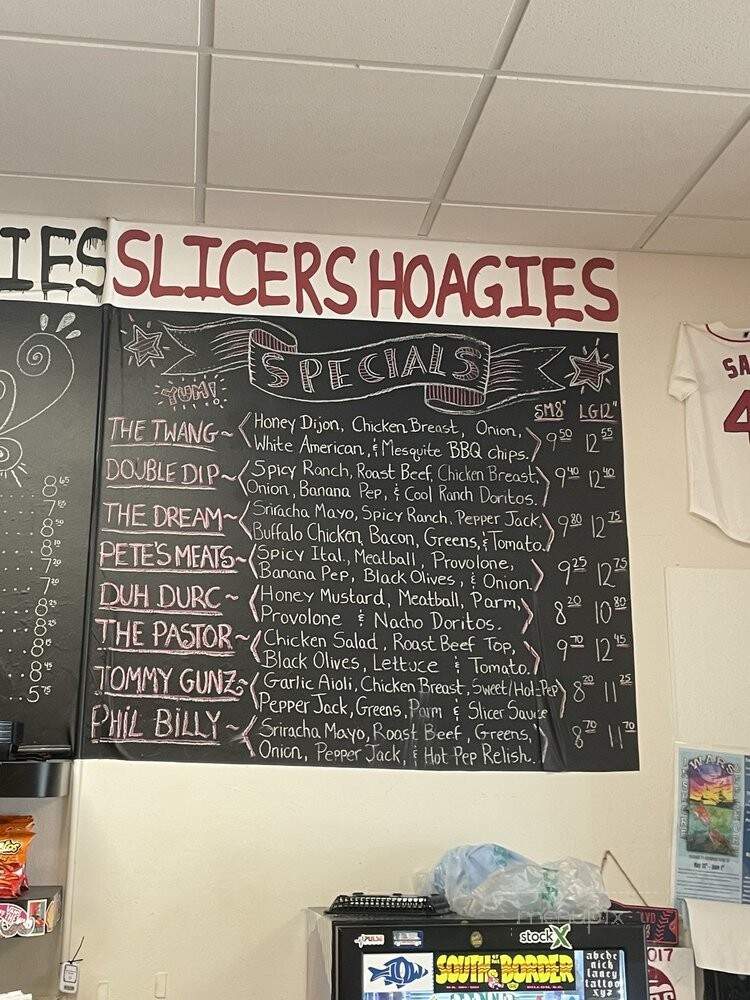 IES SLICERS HOAGIES
SPECIALS
YUM!
SM8" LG12"
THE TWANG~ Honey Dijon, Chicken Breast, Onion,
White American, & Mesquite BBQ chips. 9.50 12.55
DOUBLE DIP~ Spicy Ranch, Roast Beef, Chicken Breast,
Onion, Banana Pep, & Cool Ranch Doritos. 9.40 12.40
THE DREAM~ Sriracha Mayo, Spicy Ranch, Pepper Jack,
Buffalo Chicken, Bacon, Greens, & Tomato. 9.80 12.75
PETE'S MEATS~ Spicy Ital., Meatball, Provolone,
Banana Pep, Black Olives, & Onion. 9.25 12.75
DUH DURC~ Honey Mustard, Meatball, Parm,
Provolone & Nacho Doritos. 8.20 10.80
THE PASTOR~ Chicken Salad, Roast Beef Top,
Black Olives, Lettuce & Tomato. 9.70 12.45
TOMMY GUNZ~ Garlic Aioli, Chicken Breast, Sweet/Hot Pep
Pepper Jack, Greens, Parm & Slicer Sauce 8.20 11.25
PHIL BILLY~ Sriracha Mayo, Roast Beef, Greens,
Onion, Pepper Jack, & Hot Pep Relish. 8.70 11.70
8.65
8.50
8.10
7.20
8.25
8.25
8.45
SA
4
WARS
menupix
PULSE
stockX
LVD
LOW
SOUTH BORDER
abcde
nick
lancy
tattoo
xyz
2017